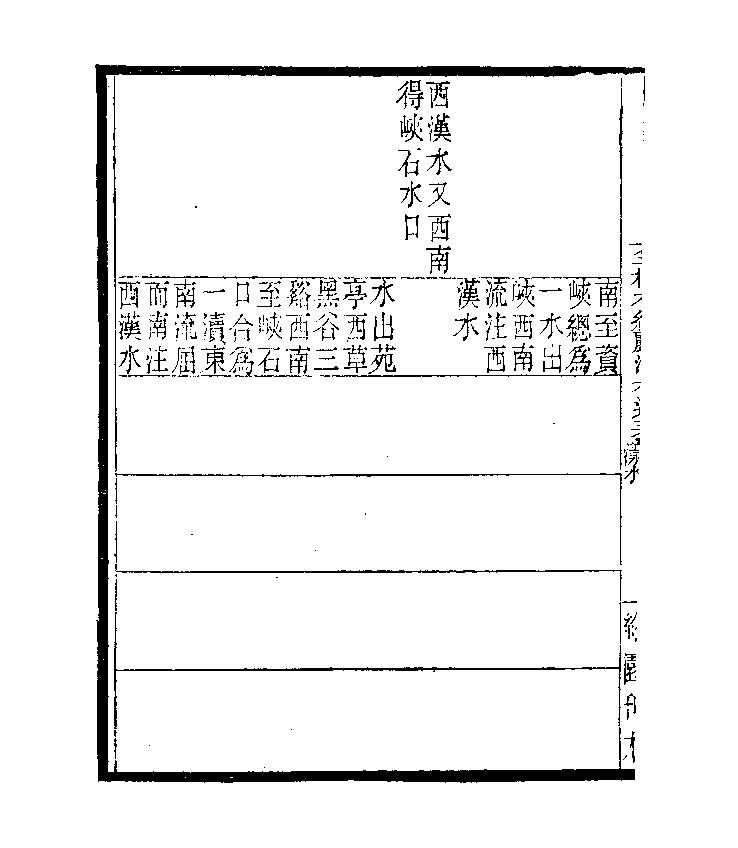 南至資
峽總爲
一水出
峽西南
流注西
漢水
西漢水又西南
得峽石水口
水出苑
亭西草
黑谷三
谿西南
至峽石
口合爲
一瀆東
南流屈
而南注
西漢水